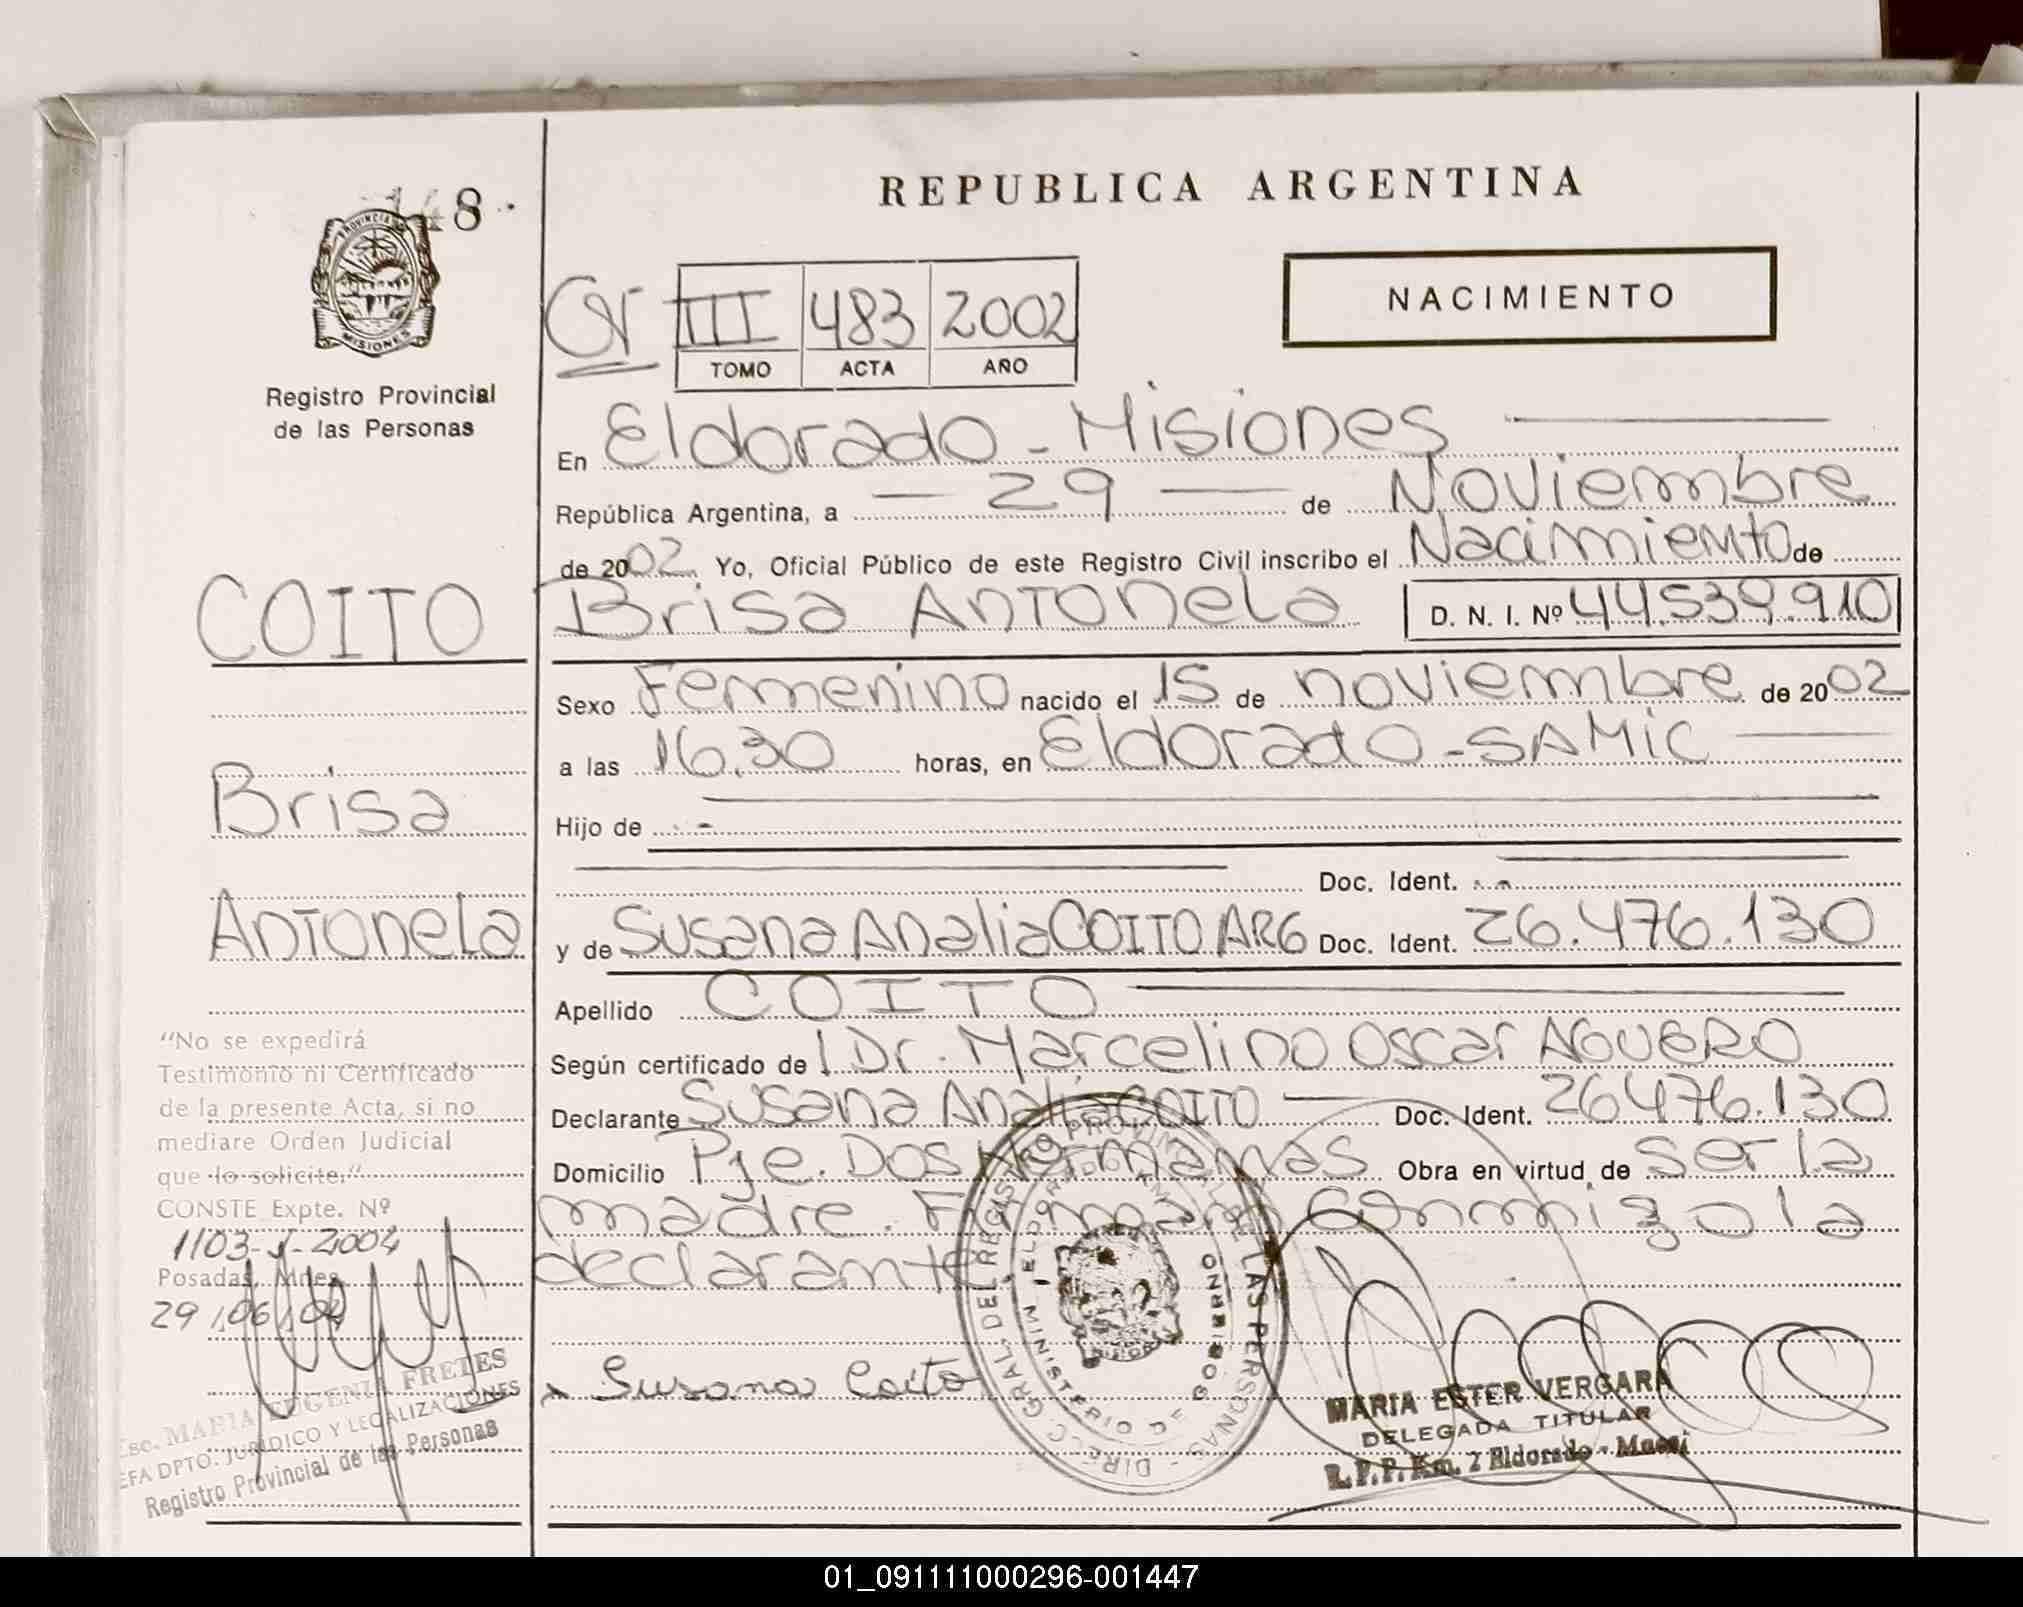 148.
PROVINCIA DE
MISIONES
Registro Provincial
de las Personas
COITO
Brisa
Antonela
"No se expedirá
Testimonio ni Certificado
de la presente Acta, si no
mediare Orden Judicial
que lo solicite."
CONSTE Expte. Nº
1103-J-2004
Posadas, Mnes.
29/06/04
Esc. MARIA EUGENIA FRETES
JEFA DPTO: JURIDICO Y LEGALIZACIONES
Registro Provincial de las Personas
REPUBLICA ARGENTINA
NACIMIENTO
III 483 2002
TOMO ACTA AÑO
En Eldorado - Misiones
República Argentina, a - 29 - de Noviembre
de 2002. Yo, Oficial Público de este Registro Civil inscribo el Nacimiento de
Brisa Antonela D. N. I. Nº 44.539.910
Sexo Femenino nacido el 15 de noviembre de 2002
a las 16,30 horas, en Eldorado - SAMIC
Hijo de
Doc. Ident.
y de Susana Analia COITO ARG Doc. Ident. 26.476.130
Apellido COITO
Según certificado de Dr. Marcelino Oscar AGUERO
Declarante Susana Analia COITO Doc. Ident. 26476.130
Domicilio Pje. Dos Hermanas Obra en virtud de ser la
madre. Firman conmigo la
declarante
Susana Coito
DIREC. GRAL. DEL REGISTRO PROVINCIAL DE LAS PERSONAS
MINISTERIO DE GOBIERNO
ELDORADO KM.
MARIA ESTER VERGARA
DELEGADA TITULAR
R.P.P. Km. 2 Eldorado - Mnes
01_091111000296-001447